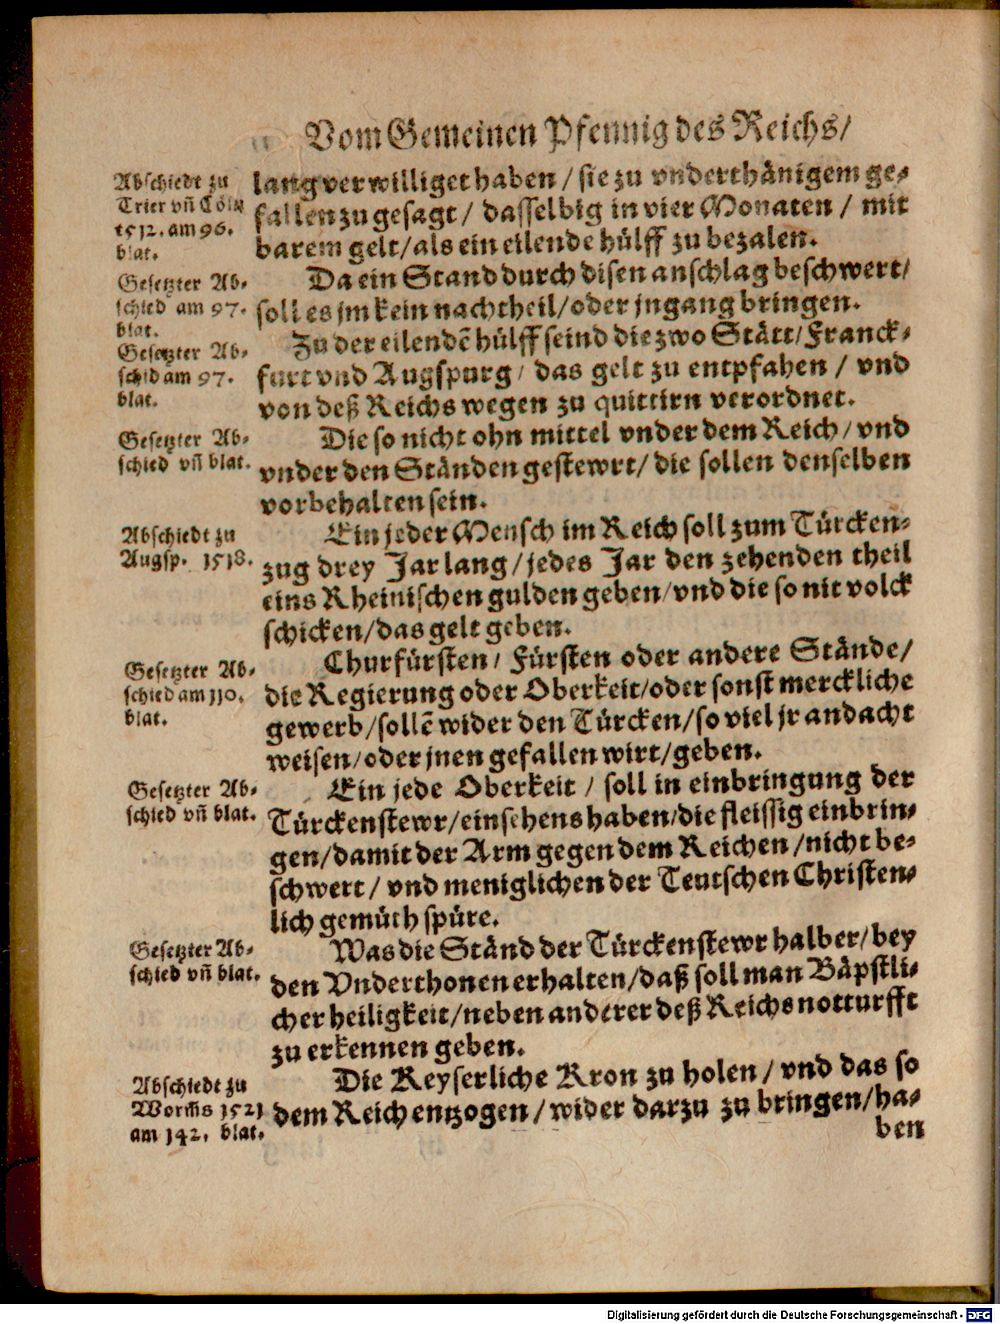 Vom Gemeinen Pfennig des Reichs/
Abschiedt zu
Trier vñ Cöln
1512. am 96.
blat.
lang verwilliget haben / sie zu vnderthänigem ge-
fallen zu gesagt / dasselbig in vier Monaten / mit
barem gelt/als ein eilende hülff zu bezalen.
Gesetzter Ab-
schied am 97.
blat.
Da ein Stand durch disen anschlag beschwert/
soll es jm kein nachtheil/oder jngang bringen.
Gesetzter Ab-
schid am 97.
blat.
Zu der eilendẽ hülff seind die zwo Stätt/Franck-
furt vnd Augspurg/ das gelt zu entpfahen / vnd
von deß Reichs wegen zu quittirn verordnet.
Gesetzter Ab-
schied vñ blat.
Die so nicht ohn mittel vnder dem Reich/vnd
vnder den Ständen gestewrt/die sollen denselben
vorbehalten sein.
Abschiedt zu
Augsp. 1518.
Ein jeder Mensch im Reich soll zum Türcken-
zug drey Jar lang/jedes Jar den zehenden theil
eins Rheinischen gulden geben/vnd die so nit volck
schicken/das gelt geben.
Gesetzter Ab-
schied am 110.
blat.
Churfürsten/ Fürsten oder andere Stände/
die Regierung oder Oberkeit/oder sonst merckliche
gewerb/sollẽ wider den Türcken/so viel jr andacht
weisen/oder jnen gefallen wirt/geben.
Gesetzter Ab-
schied vñ blat.
Ein jede Oberkeit / soll in einbringung der
Türckenstewr/einsehens haben/die fleissig einbrin-
gen/damit der Arm gegen dem Reichen/nicht be-
schwert/ vnd meniglichen der Teutschen Christen-
lich gemüth spüre.
Gesetzter Ab-
schied vñ blat.
Was die Ständ der Türckenstewr halber/bey
den Vnderthonen erhalten/daß soll man Bäpstli-
cher heiligkeit/neben anderer deß Reichs notturfft
zu erkennen geben.
Abschiedt zu
Worms 1521
am 142. blat.
Die Keyserliche Kron zu holen / vnd das so
dem Reich entzogen/wider darzu zu bringen/ha-
ben
Digitalisierung gefördert durch die Deutsche Forschungsgemeinschaft - DFG